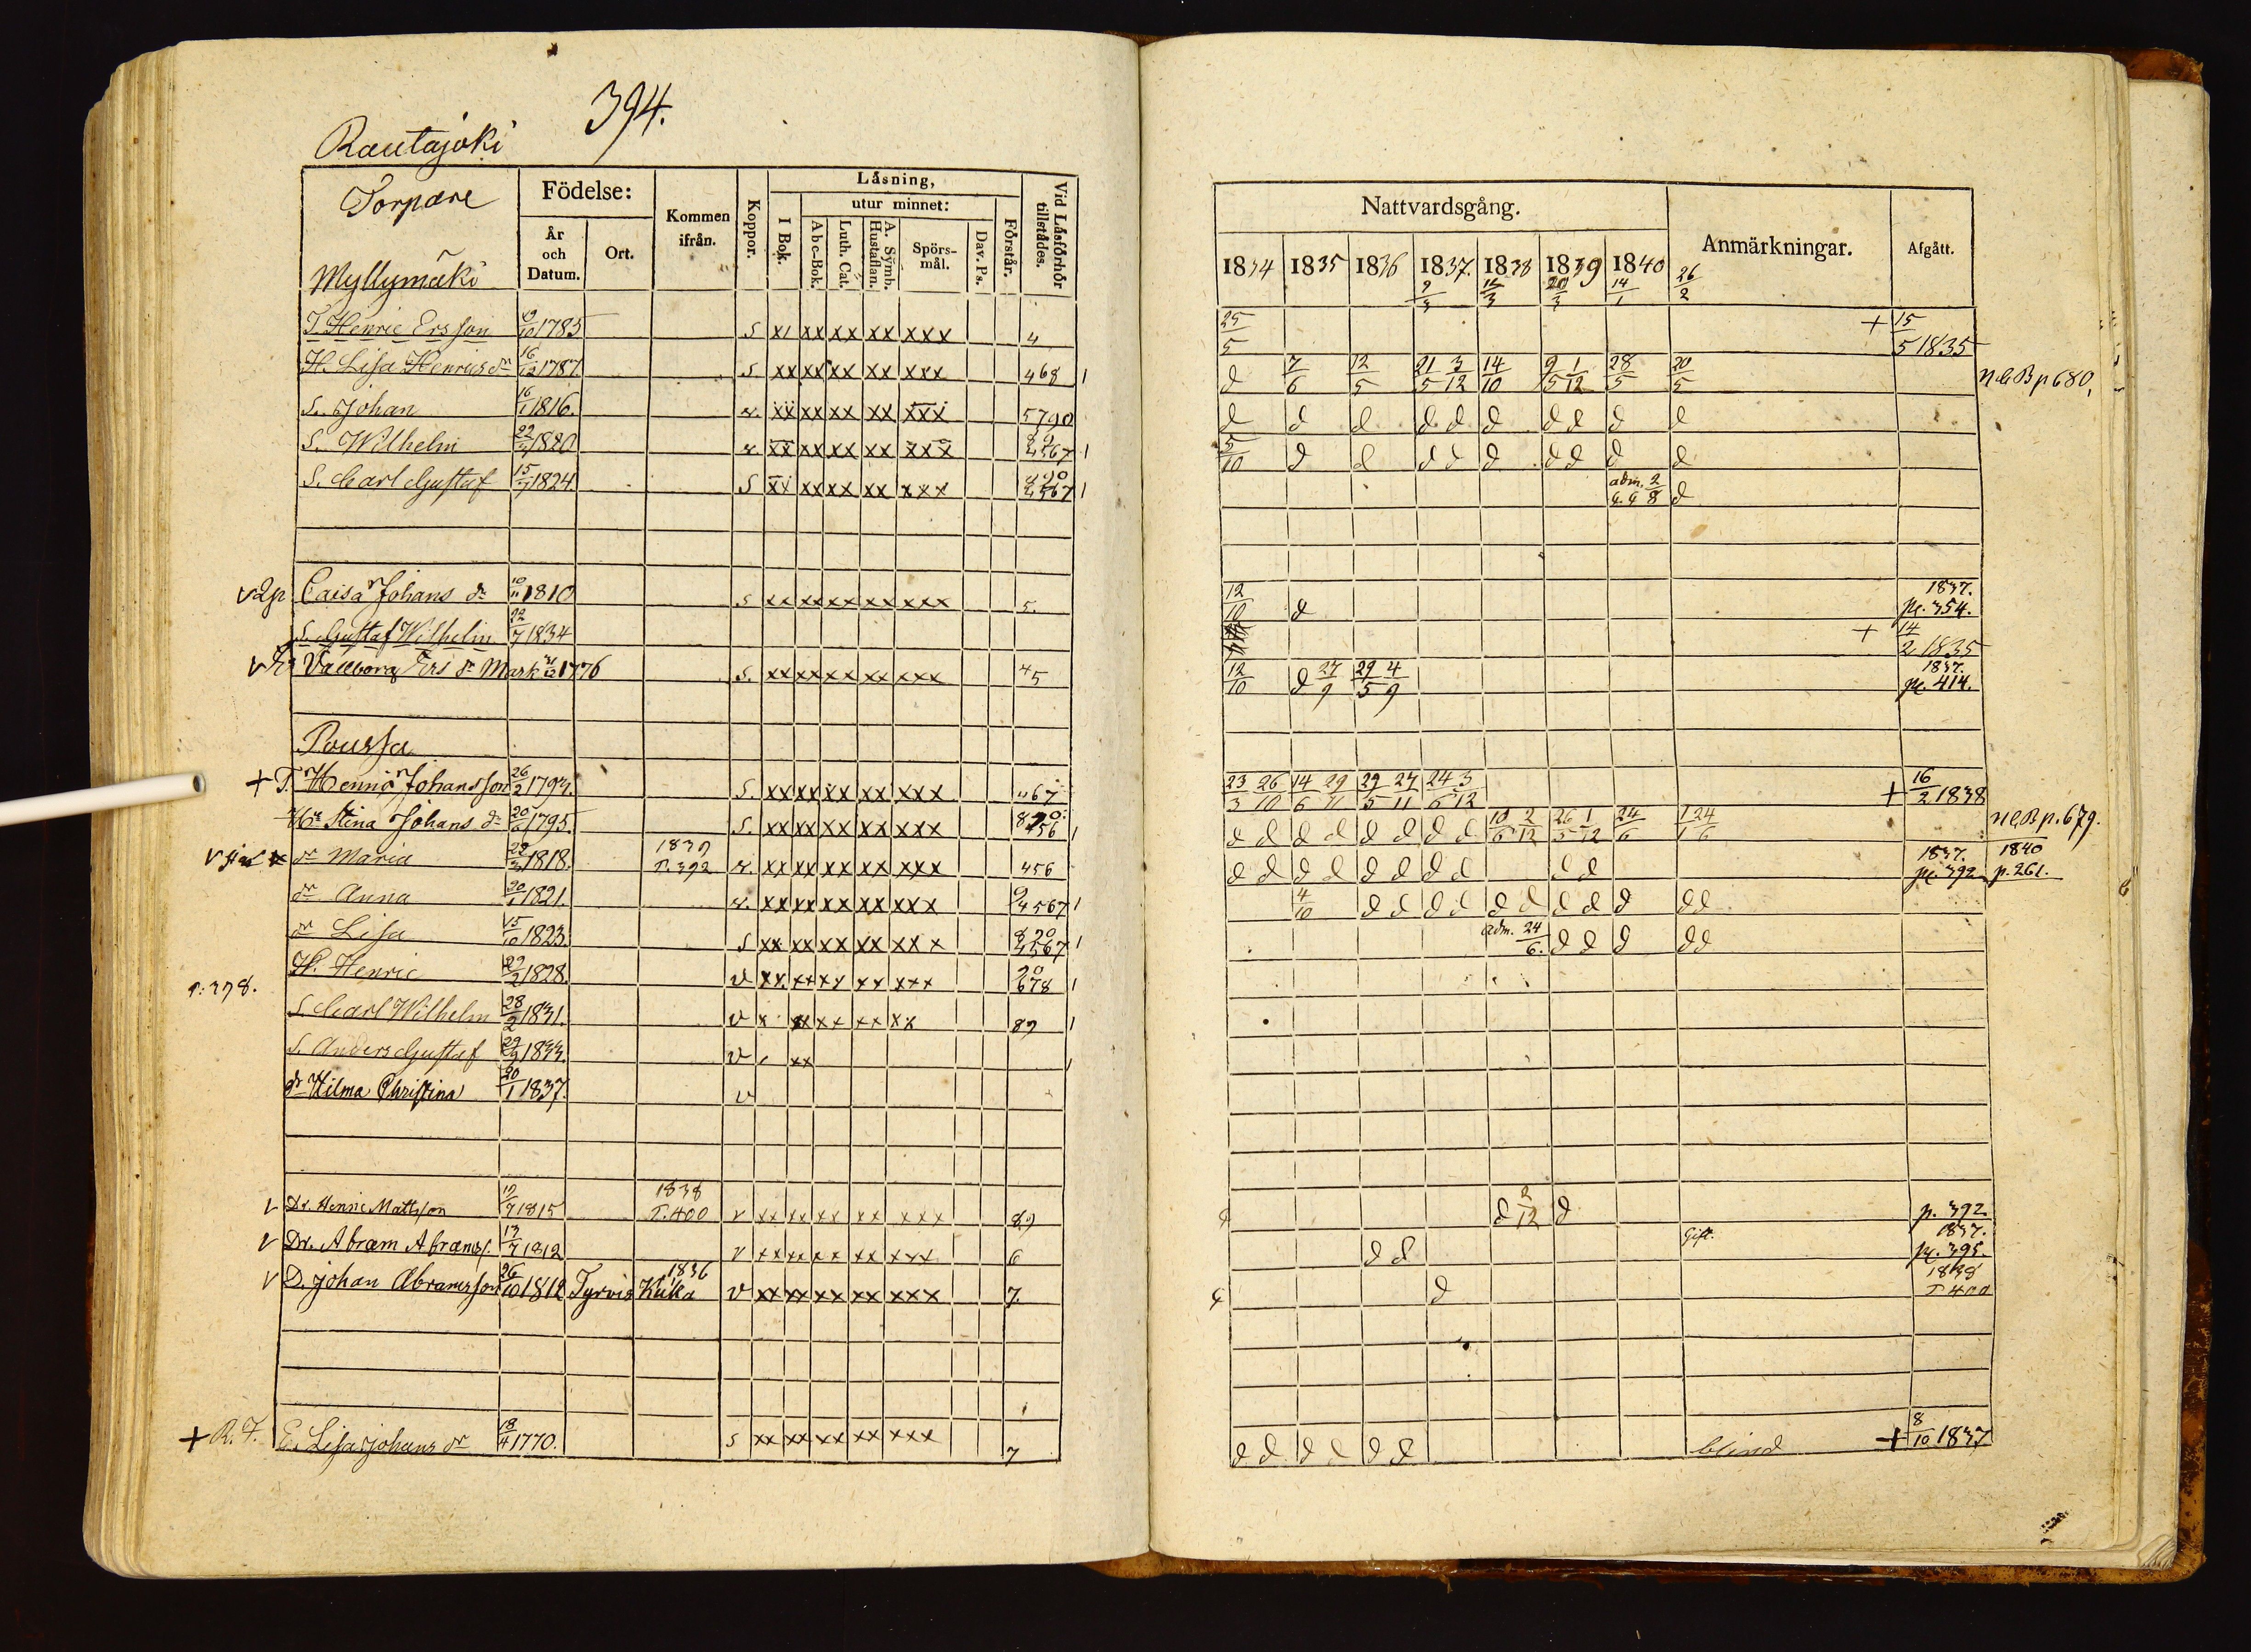 394.
Rautajoki
Torpare
Myllymäki
Födelse:
År och Datum.
Ort.
Kommen ifrån.
Koppor.
Läsning,
I Bok.
utur minnet:
Abc-Bok.
Luth. Cat.
A. Symb. Hustaflan.
Spörsmål.
Dav. Ps.
Förstår.
Vid Läsförhör tillstädes.
T. Henric Ersson 19/10 1785 s xx xx xx xxx 4
H. Lisa Henrics dr 16/12 1787 s xx xx xx xx xxx 468
S. Johan 16/1 1816. v. xx xx xx xx xxx 5790
S. Wilhelm 22/3 1820 v. xx xx xx xx xxx
S. Carl Gustaf 15/7 1824 s xx xx xx xx xxx
v 2p Caisa Johans dr 10/11 1810 s xx xx xx xx xxx 5.
S. Gustaf Wilhelm 22/7 1834
Vallborg Ers dr Mark 1776 s. xx xx xx xx xxx 45
Poussa
+ T. Henric Johansson 26/2 1794. s. xx xx xx xx xxx 467
Hu Stina Johans dr 20/6 1795. s. xx xx xx xx xxx 456
dr Maria 1818. 1839 P. 392 v. xx xx xx xx xxx 456
dr Anna 20/1 1821. v. xx xx xx xx xxx 4567
dr Lisa 15/10 1823. s xx xx xx xx xxx 4567
H. Henric 22/2 1828. v xx xx xx xx xxx 678
p. 378.
S. Carl Wilhelm 28/2 1831. v x xx xx xx xx 89
S. Anders Gustaf 29/9 1833. v xx
dr Wilma Christina 20/1 1837. v
v Dr. Henric Mattsson 1815 1838 P. 400 v xx xx xx xx xxx 89
v Dr. Abram Abramss. 17/7 1812 v xx xx xx xx xxx 6
v D. Johan Abramsson 26/10 1812 Tyrvis 1836 Kuka v xx xx xx xx xxx 7.
+ R. F. E. Lisa Johans dr 18/4 1770. s xx xx xx xx xxx 7
Nattvardsgång.
Anmärkningar.
Afgått.
1834 1835 1836 1837. 1838 1839 1840
9/3 12/3 20/3 14/1 26/2
25/5 + 15/5 1835
d 7/6 12/5 21/5 3/12 14/10 9/5 1/12 28/5 20/5
d d d d d d d d d d
5/10 d d d d d d d d d
adm. 2/8 d
12/10 d 1837. p. 354.
+ 14/2 1835
12/10 d 27/9 29/5 4/9 1837. p. 414.
23/3 26/10 14/6 29/11 29/5 27/11 24/6 3/12 + 16/2 1838
d d d d d d d d 10/6 2/12 26/5 1/12 24/6 1/1 24/6
d d d d d d d d d d 1837. p. 392 1840 p. 261.
4/10 d d d d d d d d d d d
adm. 24/6. d d d d d
d 2/12 d p. 392
d d Gift. 1837. p. 395
d 1838 P 400
d d d d d d blind + 8/10 1837